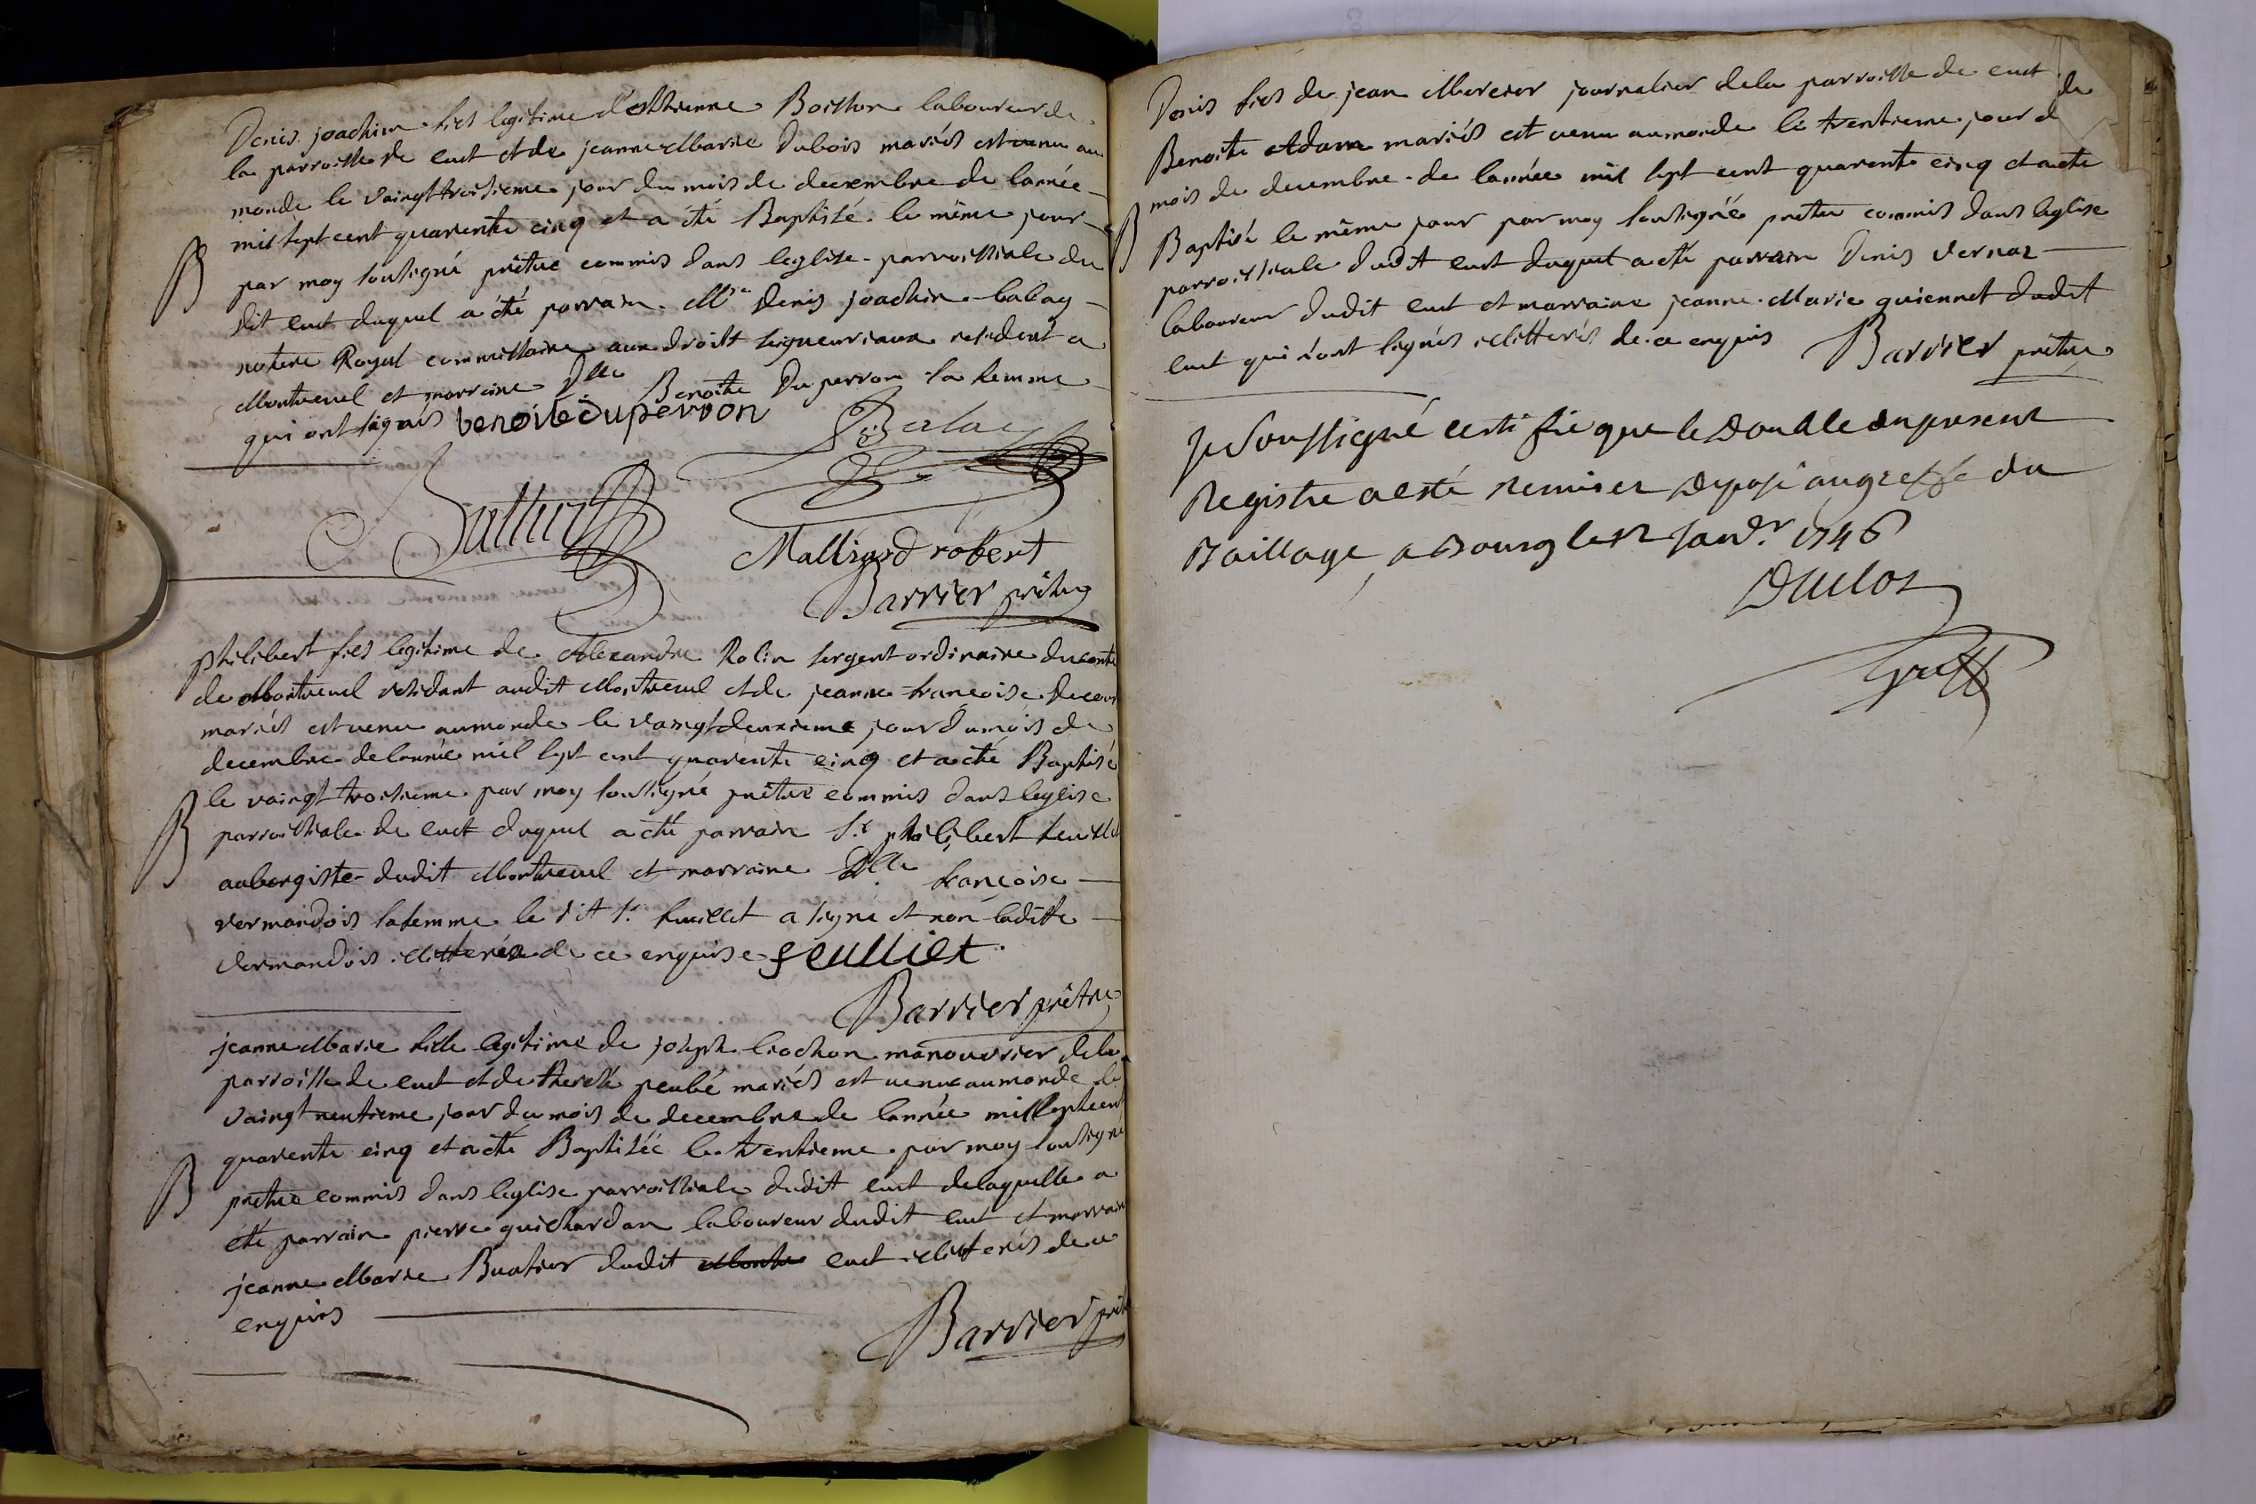 Denis joachim fils legitime d'estienne Boisson laboureur de
la parroisse de cuet et de jeanne Marie Dubois mariés est venu au
monde le vaingt troisieme jour du mois de decembre de lannée
mil sept cent quarente cinq et a été Baptisé le même jour
B par moy soussigné prêtre commis dans leglise parroissiale du
dit cuet duquel a été parrain Mre Denis joachim
notaire Royal commissaire aux droits seigneuriaux residant a
Montrevel et marraine Dlle Benoite Duperron sa femme
qui ont signés benoite duperron
Mallirard robert
Barrier prêtre
philibert fils legitime de Alexandre Rolin sergent ordinaire du conté
de Montrevel residant audit Montrevel et de jeanne francoise
mariés est venu au monde le vaingt deuxieme jour du mois de
decembre de lannée mil sept cent quarente cinq et a été Baptisé
B le vaingt troisieme par moy soussigné prêtre commis dans leglise
parroissiale de cuet duquel a été parrain Sr philibert feuillet
aubergiste dudit Montrevel et marraine Dlle françoise
vermandois sa femme le dit Sr feuillet a signé et non laditte
vermandois illitterée de ce enquise feulliet
Barrier prêtre
jeanne Marie fille legitime de joseph manouvrier de la
parroisse de cuet et de therese peubé mariés est venue au monde le
vaingt neufvieme jour du mois de decembre de lannée mil sept cent
quarente cinq et a été Baptisée le trentieme par moy soussigné
B prêtre commis dans leglise parroissiale dudit cuet de laquelle a
été parrain pierre guichardan laboureur dudit cuet et marraine
jeanne Marie Buatier dudit cuet illiterés de ce
enquis
Barrier prêtre
Denis fils de jean Mercier journalier de la parroisse de cuet et de
Benoite Adam mariés est venu au monde le trentieme jour du
mois de decembre de lannée mil sept cent quarente cinq et a été
B Baptisé le même jour par moy soussigné prêtre commis dans leglise
parroissiale dudit cuet duquel a été parrain Denis vernaz
laboureur dudit cuet et marraine jeanne Marie guiennet dudit
cuet qui n'ont signés illitterés de ce enquis Barrier prêtre
Je Soussigné certifie que le Double du present
Registre a esté remis et deposé au greffe du
Baillage a Bourg le 12 Janvr 1746
Duclos
Greff